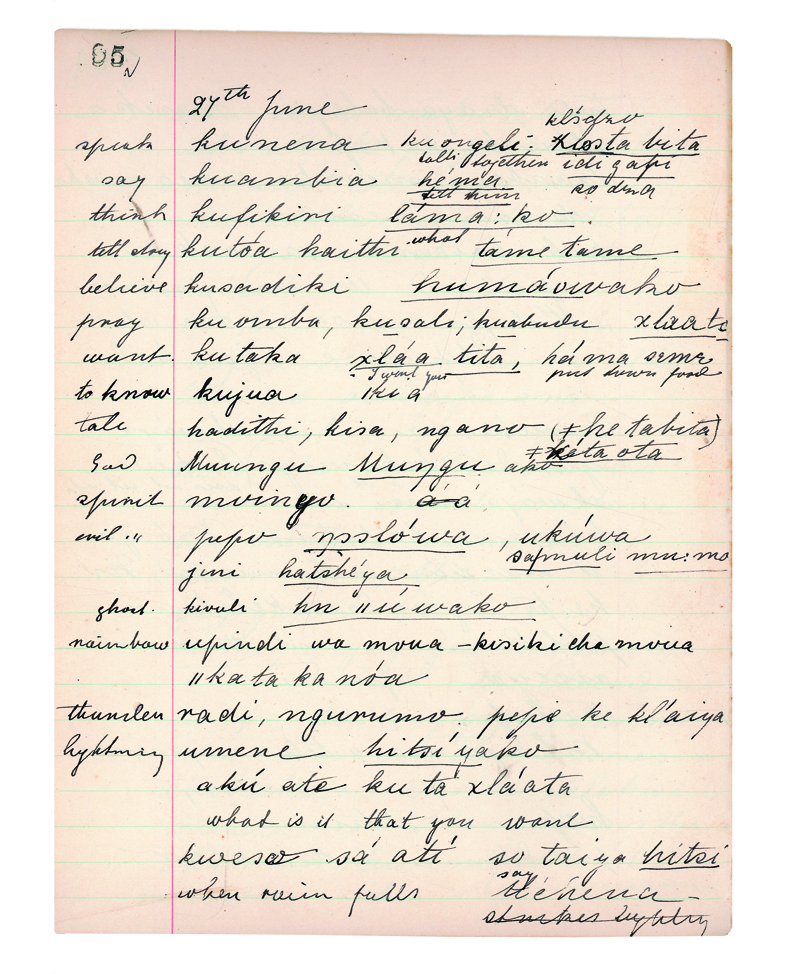 95
27th June
klódzo
speak kunena kuongeli: xlosta bita
talk together idi gapi
say kuambia héma so dza
tell him
think kufikiri láma:ko.
tell story kutóa haithi what táme tame
believe kusadiki humáowako
pray kuomba, kusali; kuabudu xlaata
want. kutaka xláa tita, háma seme
I want you put down food
to know kujua ikia
tale hadithi, kisa, ngano (ǂhe tabita)
ǂháta ota
God Muungu Muŋgu ako
spirit moingo. áá
evil " pepo ŋssló wa, ukúwa
sapmuli mu:mo
jini hatshéya
ghost. kivuli hn ǁú wako
rainbow upindi wa moua – kisiki cha moua
ǁkata ka nóa
thunder radi, ngurumo. pepe ke kl'aiya
lightning umene hitsíyako
akú ate ku tá xláata
what is it that you want
kweso sá atí so taiya hitsi
say
when rain falls tléhena –
strikes lightng